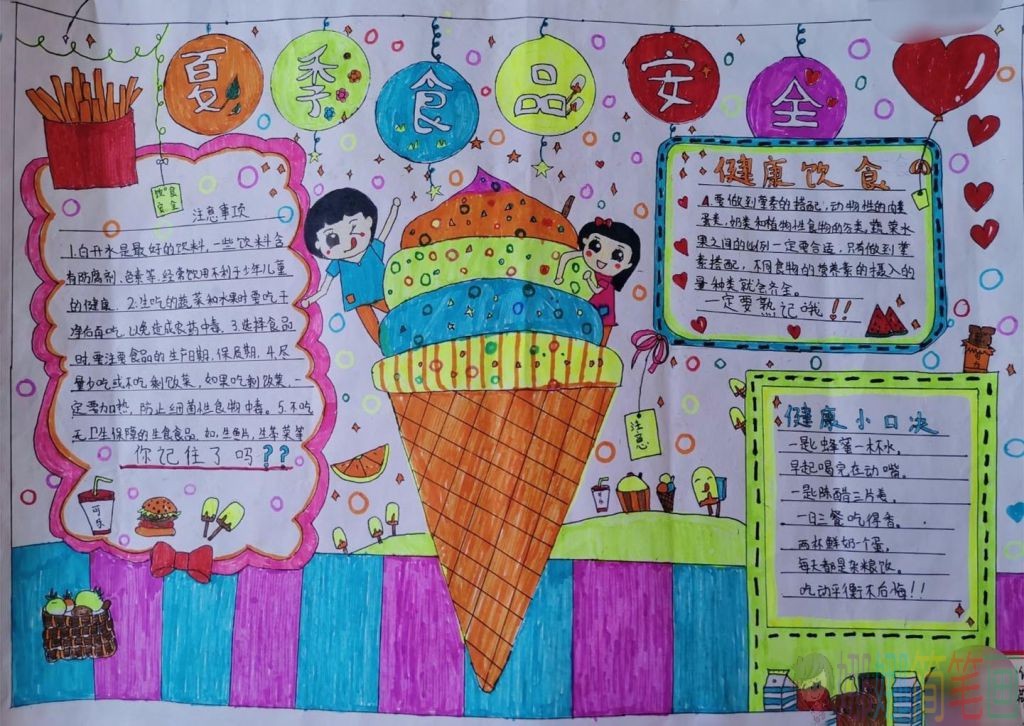 夏季食品安全
饮食
安全
注意事项
1.白开水是最好的饮料,一些饮料含
有防腐剂、色素等,经常饮用不利于少年儿童
的健康. 2.生吃的蔬菜和水果时要吃干
净后再吃,以免造成农药中毒. 3.选择食品
时,要注要食品的生产日期,保质期. 4.尽
量少吃或不吃剩饭菜,如果吃剩饭菜,一
定要加热,防止细菌性食物中毒。5.不吃
无卫生保障的生食食品.如,生鱼片,生冬菜等
你记住了吗??
可乐
健康饮食
要做到营素的搭配,动物性的肉类
蛋类,奶类和植物性食物的豆类,蔬菜水
果之间的比列一定要合适,只有做到营
素搭配,不同食物的营养素的摄入的
量种类就会齐全。
一定要熟记哦!!
注意
健康小口决
一匙蜂蜜一杯水,
早起喝完在动嘴。
一匙陈醋三片姜,
一日三餐吃得香。
两杯鲜奶一个蛋,
每天都是杂粮饭。
吃动平衡不后悔!!